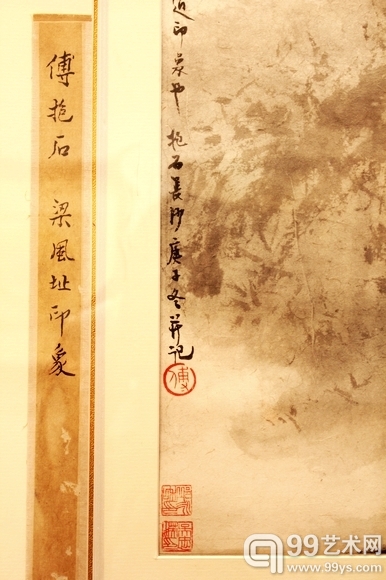 傅抱石 梁風址印象
印象也 抱石長沙庚子冬并記
傅
99艺术网
www.99ys.com